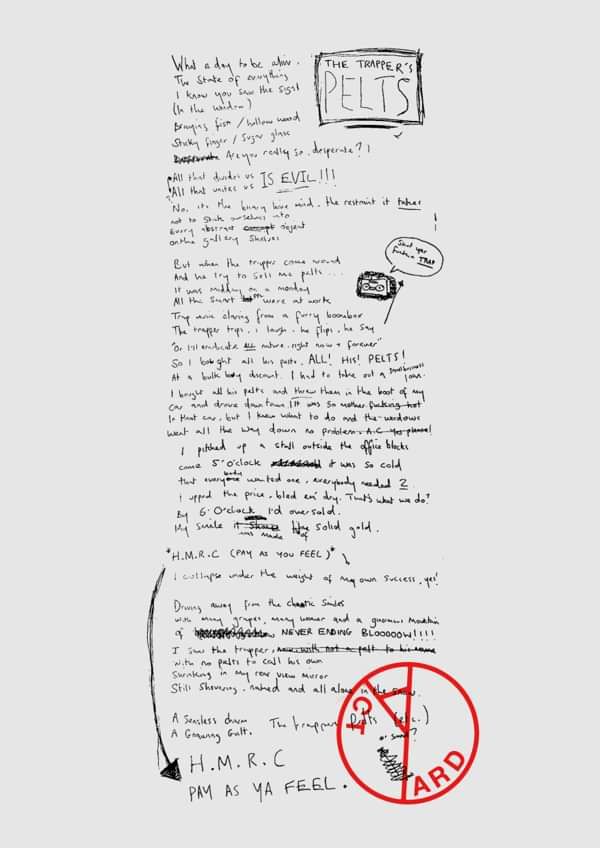 THE TRAPPER'S
PELTS
What a day to be alive.
The State of everything
I know you saw the signs
(In the window)
Bringing fish / hollow
Sticky finger / Sugar glass
Desperate Are you really so desperate?
All that divides us IS EVIL!!!
All that unites us
No, its the binary hive mind, the restraint it takes
not to stick ourselves into
Every abstract concept object
on the gallery shelves
Shut yer
fuckin TRAP
But when the trapper came around
And he try to sell me pelts...
It was midday on a monday
All the smart were at work
Trap music blaring from a furry boombox
The trapper trips, i laugh, he flips, he say
"Or i'll eradicate ALL nature, right now + forever"
So I bought all his pelts. ALL! HIS! PELTS!
At a bulk buy discount. I had to take out a small business
loan.
I bought all his pelts and threw them in the boot of my
car and drove downtown (It was so mother fucking hot
In that car, but I knew what to do and the windows
went all the way down no problem. A.C yes please!
I pitched up a stall outside the office blocks
come 5 O'clock it was so cold
that everybody wanted one, everybody needed 2
i upped the price, bled em' dry. That's what we do?
By 6 O'clock I'd oversold.
My smile it was made of solid gold.
*H.M.R.C (PAY AS YOU FEEL)*
I collapse under the weight of my own success, yes!
Driving away from the chaotic scenes
with many grapes, many women and a ginormous mountain
of NEVER ENDING BLOOOOOW!!!!
I saw the trapper, now with not a pelt to his name
with no pelts to call his own
Shrinking in my rear view mirror
Still Shivering, naked and all alone in the snow.
A Senseless charm
A Gnawing Guilt.
The trappers Pelts (etc.)
or some?
H.M.R.C
PAY AS YA FEEL.
YARD
ACT